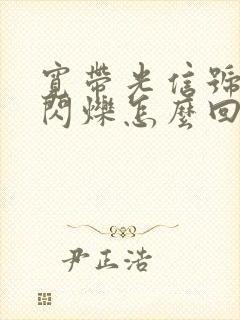 寬帶光信號
閃爍怎麼回
尹正浩